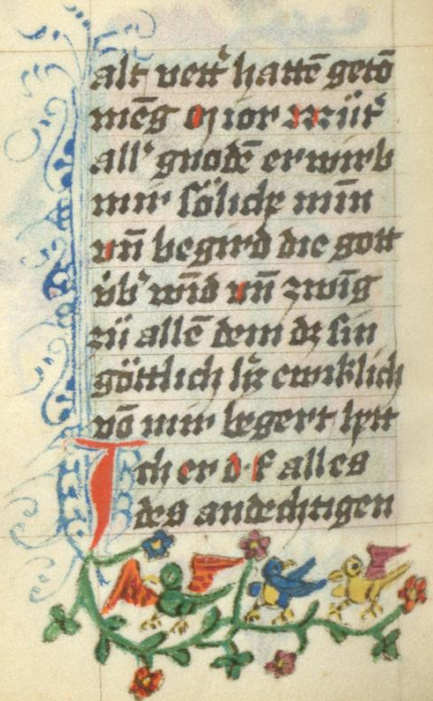 alt vett' hattē getō
mēg
all' gnodē erwirb
mir sölich mīn
vn̄ begird die gott
v̇b' wīd vn̄ zwīg
zů allē dem dz sin
göttlich h'tz ewiklich
vō mir begert hett
Ich er d f alles
des andechtigen